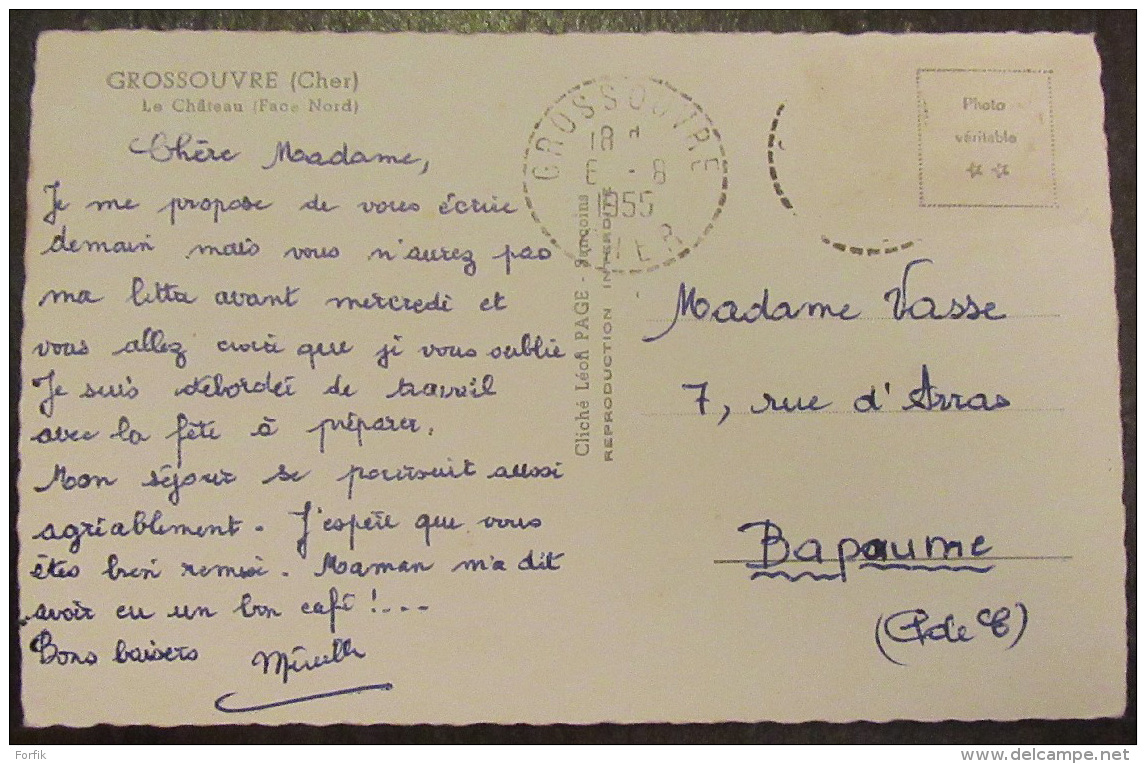 GROSSOUVRE (Cher)
Le Château (Face Nord)
Chère Madame,
Je me propose de vous écrire
demain mais vous n'aurez pas
ma lettre avant mercredi et
vous allez croire que je vous oublie
Je suis débordée de travail
avec la fête à préparer.
Mon séjour se poursuit aussi
agréablement. J'espère que vous
êtes bien remise. Maman m'a dit
avoir eu un bon café !...
Bons baisers Mireille
GROSSOUVRE
18 H
6 - 8
1955
CHER
Cliché Léon PAGE - Sancoins
REPRODUCTION INTERDITE
Photo
véritable
Madame Vasse
7, rue d'Arras
Bapaume
(P de C)
Forfik
www.delcampe.net